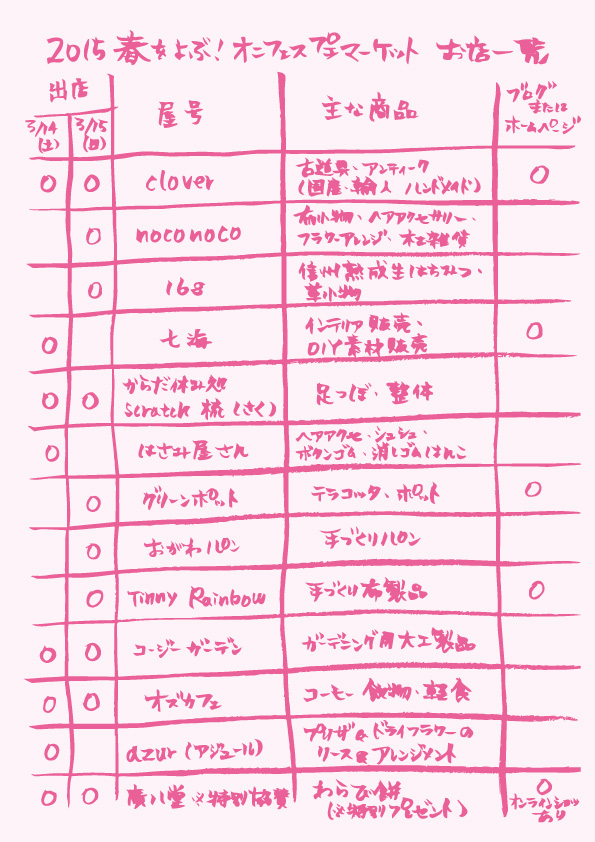 2015 春をよぶ！オニフェスプチマーケット お店一覧
出店 屋号 主な商品 ブログ または ホームページ
3/14(土) 3/15(日)
○ ○ clover 古道具・アンティーク (国産・輸入 ハンドメイド) ○
○ noconoco 布小物・ヘアアクセサリー・フラワーアレンジ・木工雑貨
○ 168 信州熟成生はちみつ・革小物
○ 七海 インテリア販売・DIY素材販売 ○
○ ○ からだ休み処 scratch 梳(さく) 足つぼ・整体
○ はさみ屋さん ヘアアクセ・シュシュ・ボタンゴム・消しゴムはんこ
○ グリーンポット テラコッタ・ポット ○
○ おがわパン 手づくりパン
○ Tinny Rainbow 手づくり布製品 ○
○ ○ コージーガーデン ガーデニング用大工製品
○ ○ オズカフェ コーヒー 飲物・軽食
○ azur (アジュール) プリザ&ドライフラワーのリース&アレンジメント
○ ○ 廣八堂 ※特別協賛 わらび餅 (※特別プレゼント) ○ オンラインショップあり